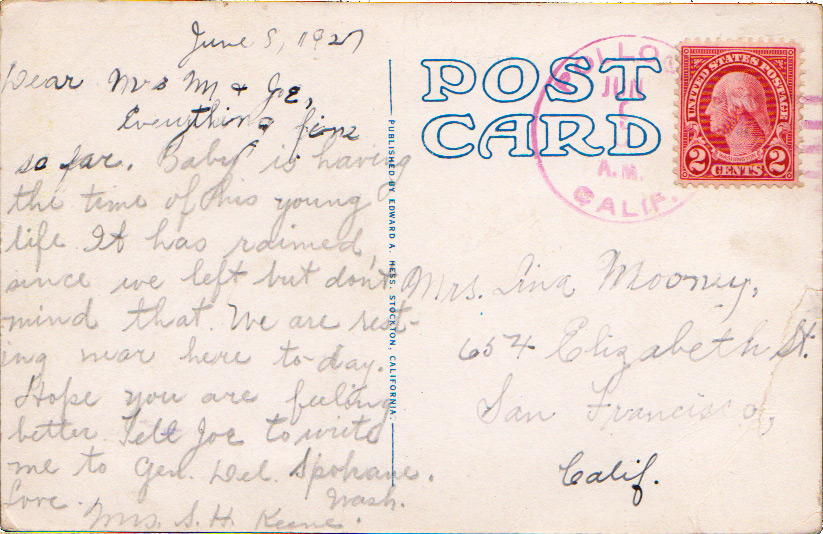 June 5, 1927
Dear Mrs M & Joe,
Everything fine
so far. Baby is having
the time of his young
life. It has rained,
since we left but don't
mind that. We are rest-
ing near here to-day.
Hope you are feeling
better. Tell Joe to write
me to Gen. Del. Spokane.
Wash.
Love.
Mrs. S. H. Keene.
PUBLISHED BY EDWARD A. HESS, STOCKTON, CALIFORNIA.
POST
CARD
JUN
A.M.
CALIF.
UNITED STATES POSTAGE
WASHINGTON
2 CENTS 2
Mrs. Lina Mooney,
654 Elizabeth St.
San Francisco,
Calif.